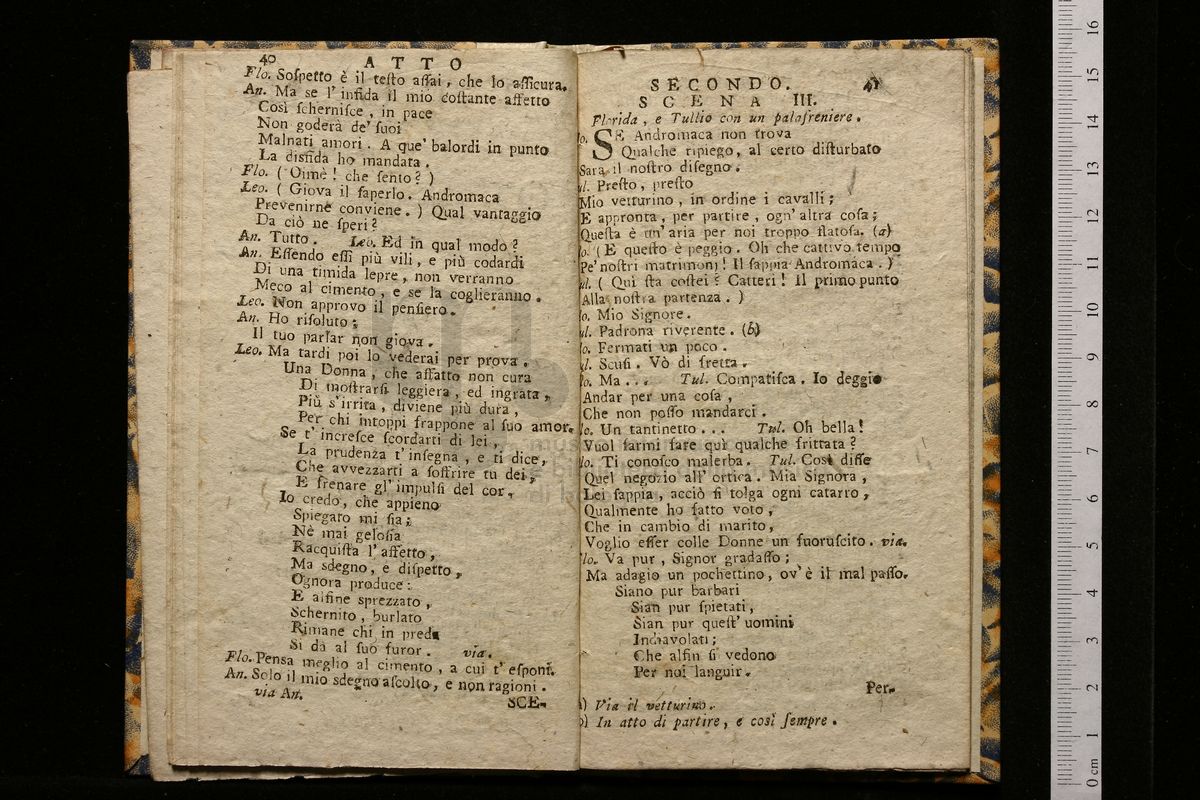 40
ATTO
Flo. Soſpetto è il teſto aſſai, che lo aſſicura.
An. Ma se l' infida il mio coſtante affetto
Così ſcherniſce, in pace
Non goderà de' ſuoi
Malnati amori. A que' balordi in punto
La disfida ho mandata.
Flo. (Oimè! che ſento?)
Leo. (Giova il ſaperlo. Andromaca
Prevenirne conviene.) Qual vantaggio
Da ciò ne ſperi?
An. Tutto. Leo. Ed in qual modo?
An. Eſſendo eſſi più vili, e più codardi
Di una timida lepre, non verranno
Meco al cimento, e se la coglieranno.
Leo. Non approvo il penſiero.
An. Ho riſoluto;
Il tuo parlar non giova.
Leo. Ma tardi poi lo vederai per prova.
Una Donna, che affatto non cura
Di moſtrarſi leggiera, ed ingrata,
Più s'irrita, diviene più dura,
Per chi intoppi frappone al ſuo amor.
Se t' increſce ſcordarti di lei,
La prudenza t'inſegna, e ti dice,
Che avvezzarti a ſoffrire tu dei,
E frenare gl' impulſi del cor.
Io credo, che appieno
Spiegato mi ſia;
Nè mai geloſia
Racquiſta l'affetto,
Ma sdegno, e diſpetto,
Ognora produce:
E alfine sprezzato,
Schernito, burlato
Rimane chi in preda
Si dà al ſuo furor. via.
Flo. Penſa meglio al cimento, a cui t' eſponi.
An. Solo il mio sdegno aſcolto, e non ragioni.
via An.
SCE-
SECONDO. 41
SCENA III.
Florida, e Tullio con un palafreniere.
lo. SE Andromaca non trova
Qualche ripiego, al certo diſturbato
Sarà il noſtro diſegno.
ul. Preſto, preſto
Mio vetturino, in ordine i cavalli;
E appronta, per partire, ogn' altra coſa;
Queſta è un'aria per noi troppo flatoſa. (a)
lo. (E queſto è peggio. Oh che cattivo tempo
Pe' noſtri matrimonj! Il ſappia Andromaca.)
ul. (Qui ſta coſtei? Catteri! Il primo punto
Alla noſtra partenza.)
lo. Mio Signore.
ul. Padrona riverente. (b)
lo. Fermati un poco.
ul. Scuſi. Vò di fretta.
lo. Ma... Tul. Compatiſca. Io deggio
Andar per una coſa,
Che non poſſo mandarci.
lo. Un tantinetto... Tul. Oh bella!
Vuol farmi fare quì qualche frittata?
lo. Ti conoſco malerba. Tul. Così diſſe
Quel negozio all' ortica. Mia Signora,
Lei ſappia, acciò ſi tolga ogni catarro,
Qualmente ho fatto voto,
Che in cambio di marito,
Voglio eſſer colle Donne un fuoruſcito. via.
lo. Va pur, Signor gradaſſo;
Ma adagio un pochettino, ov'è il mal paſſo.
Siano pur barbari
Sian pur ſpietati,
Sian pur queſt' uomini
Indiavolati;
Che alfin ſi vedono
Per noi languir.
Per-
a) Via il vetturino.
b) In atto di partire, e così ſempre.
16
15
14
13
12
11
10
9
8
7
6
5
4
3
2
1
0 cm